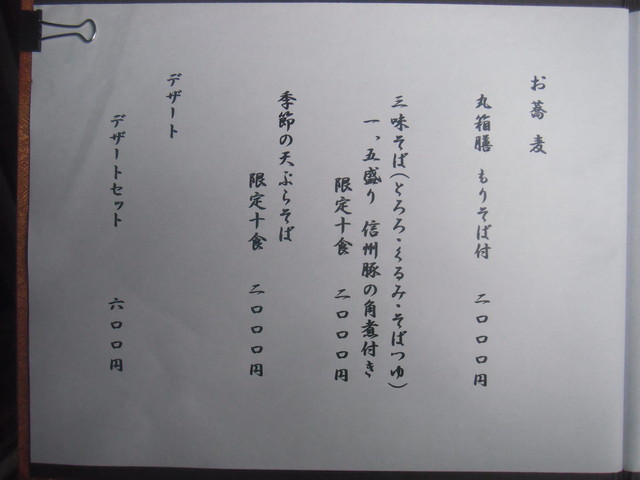 お蕎麦
丸箱膳 もりそば付 二〇〇〇円
三味そば(とろろ・くるみ・そばつゆ)
一、五盛り 信州豚の角煮付き
限定十食 二〇〇〇円
季節の天ぷらそば
限定十食 二〇〇〇円
デザート
デザートセット 六〇〇円